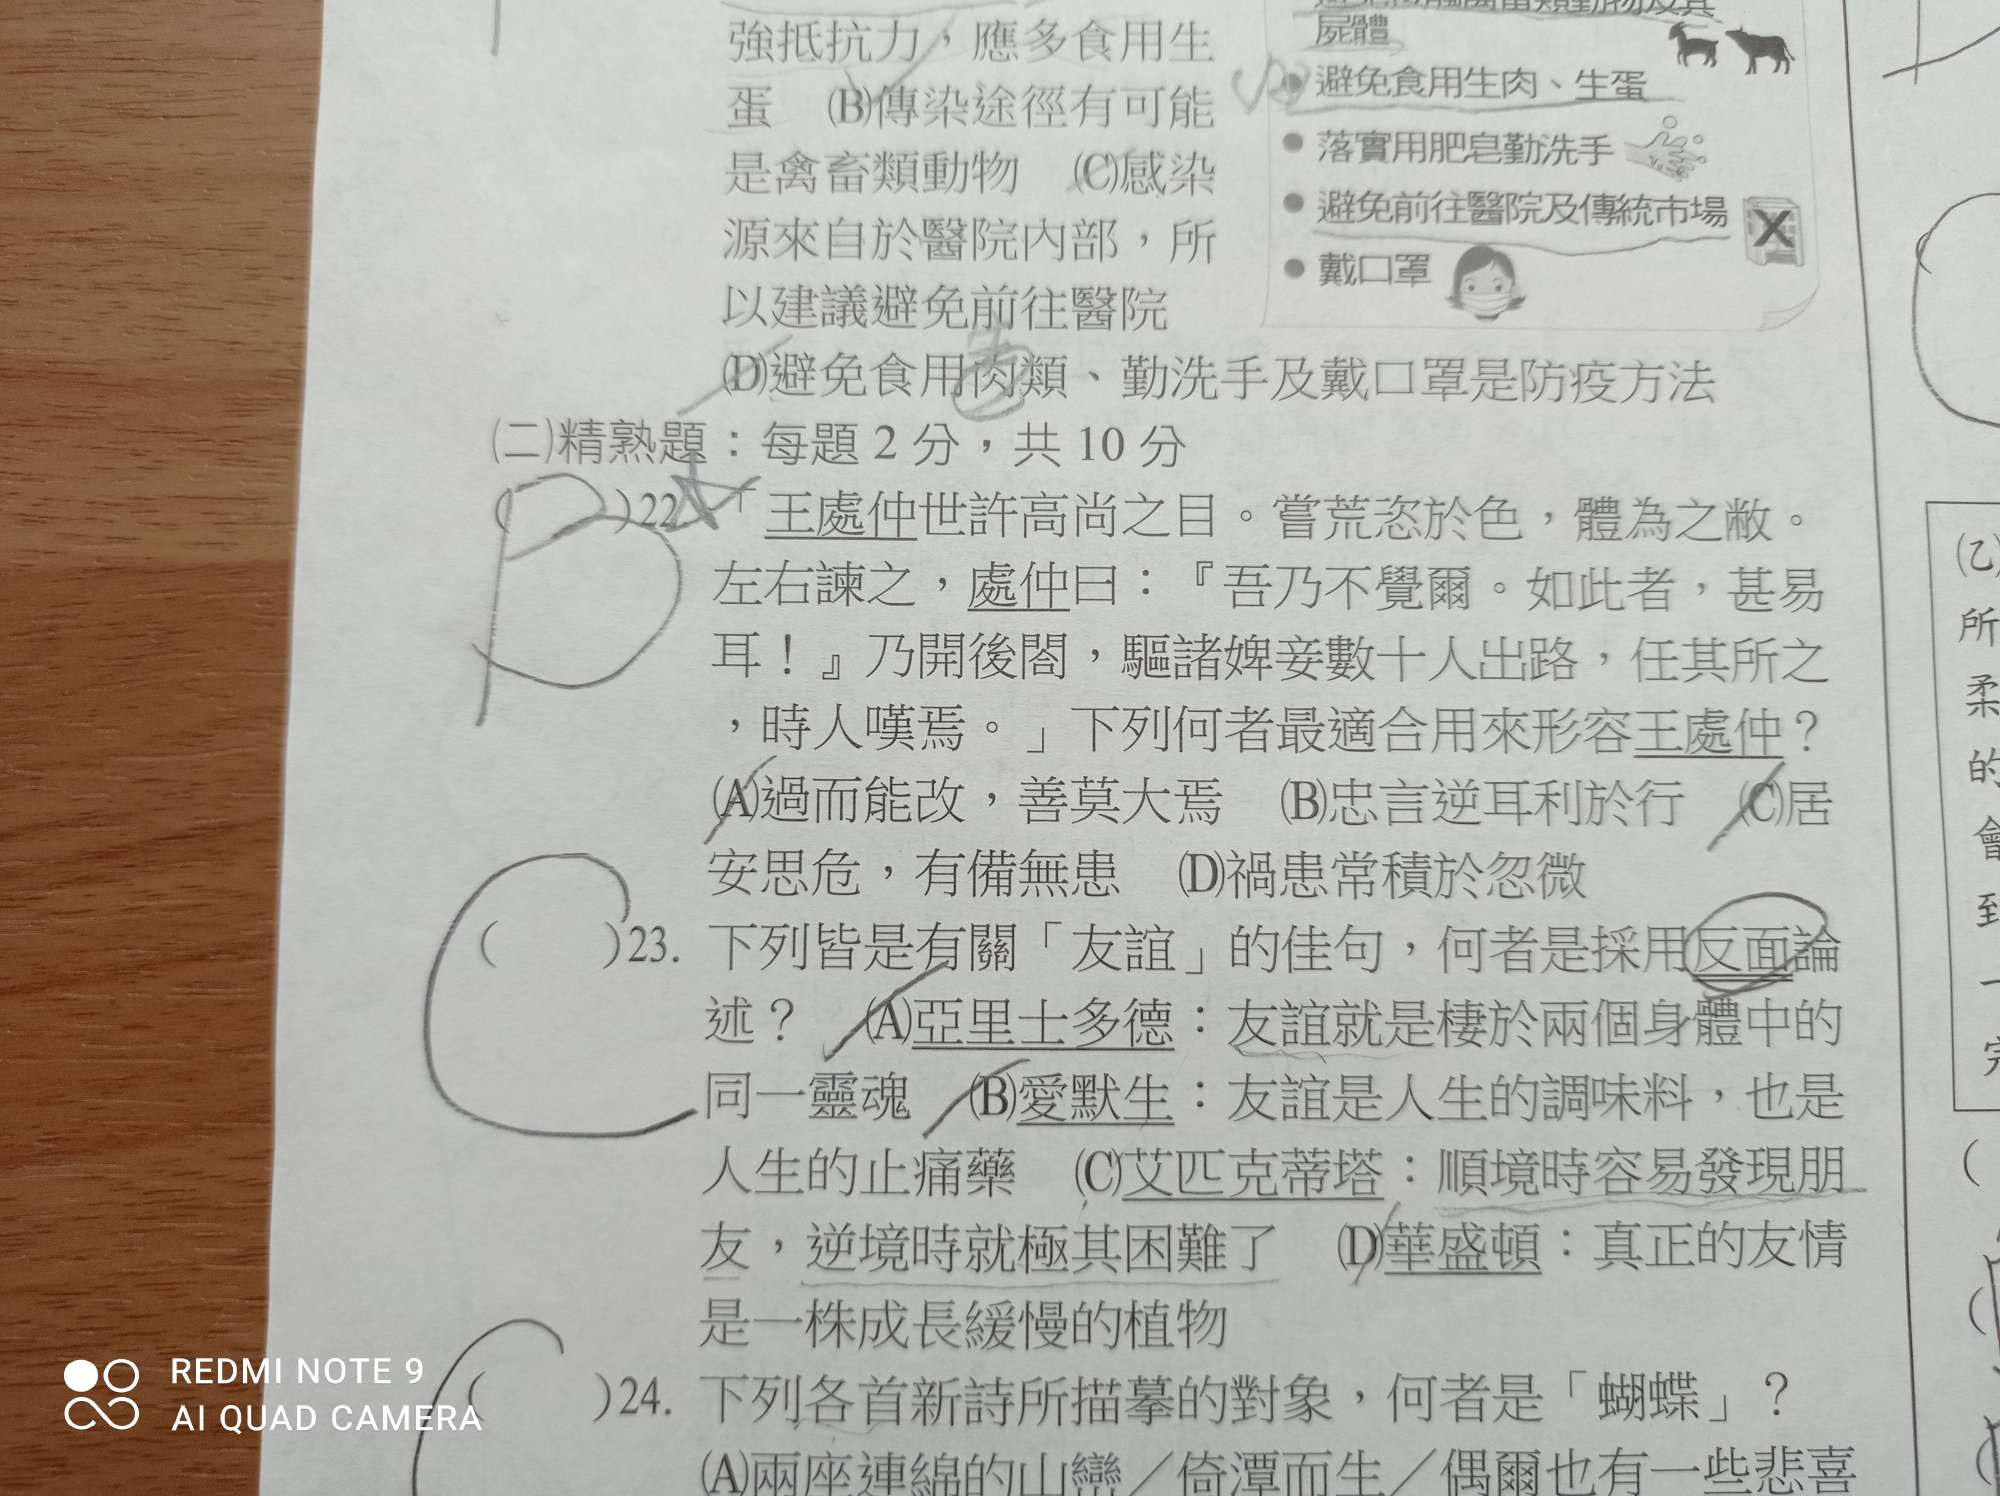 屍體
強抵抗力，應多食用生
蛋　(B)傳染途徑有可能
是禽畜類動物　(C)感染
源來自於醫院內部，所
以建議避免前往醫院
(D)避免食用肉類、勤洗手及戴口罩是防疫方法
●避免食用生肉、生蛋
●落實用肥皂勤洗手
●避免前往醫院及傳統市場
X
●戴口罩
(二)精熟題：每題 2 分，共 10 分
B
(　)22.「王處仲世許高尚之目。嘗荒恣於色，體為之敝。
左右諫之，處仲曰：『吾乃不覺爾。如此者，甚易
耳！』乃開後閤，驅諸婢妾數十人出路，任其所之
，時人嘆焉。」下列何者最適合用來形容王處仲？
(A)過而能改，善莫大焉　(B)忠言逆耳利於行　(C)居
安思危，有備無患　(D)禍患常積於忽微
C
(　)23. 下列皆是有關「友誼」的佳句，何者是採用反面論
述？　(A)亞里士多德：友誼就是棲於兩個身體中的
同一靈魂　(B)愛默生：友誼是人生的調味料，也是
人生的止痛藥　(C)艾匹克蒂塔：順境時容易發現朋
友，逆境時就極其困難了　(D)華盛頓：真正的友情
是一株成長緩慢的植物
C
(　)24. 下列各首新詩所描摹的對象，何者是「蝴蝶」？
(A)兩座連綿的山巒／倚潭而生／偶爾也有一些悲喜
(乙)
所
柔
的
會
到
一
REDMI NOTE 9
AI QUAD CAMERA